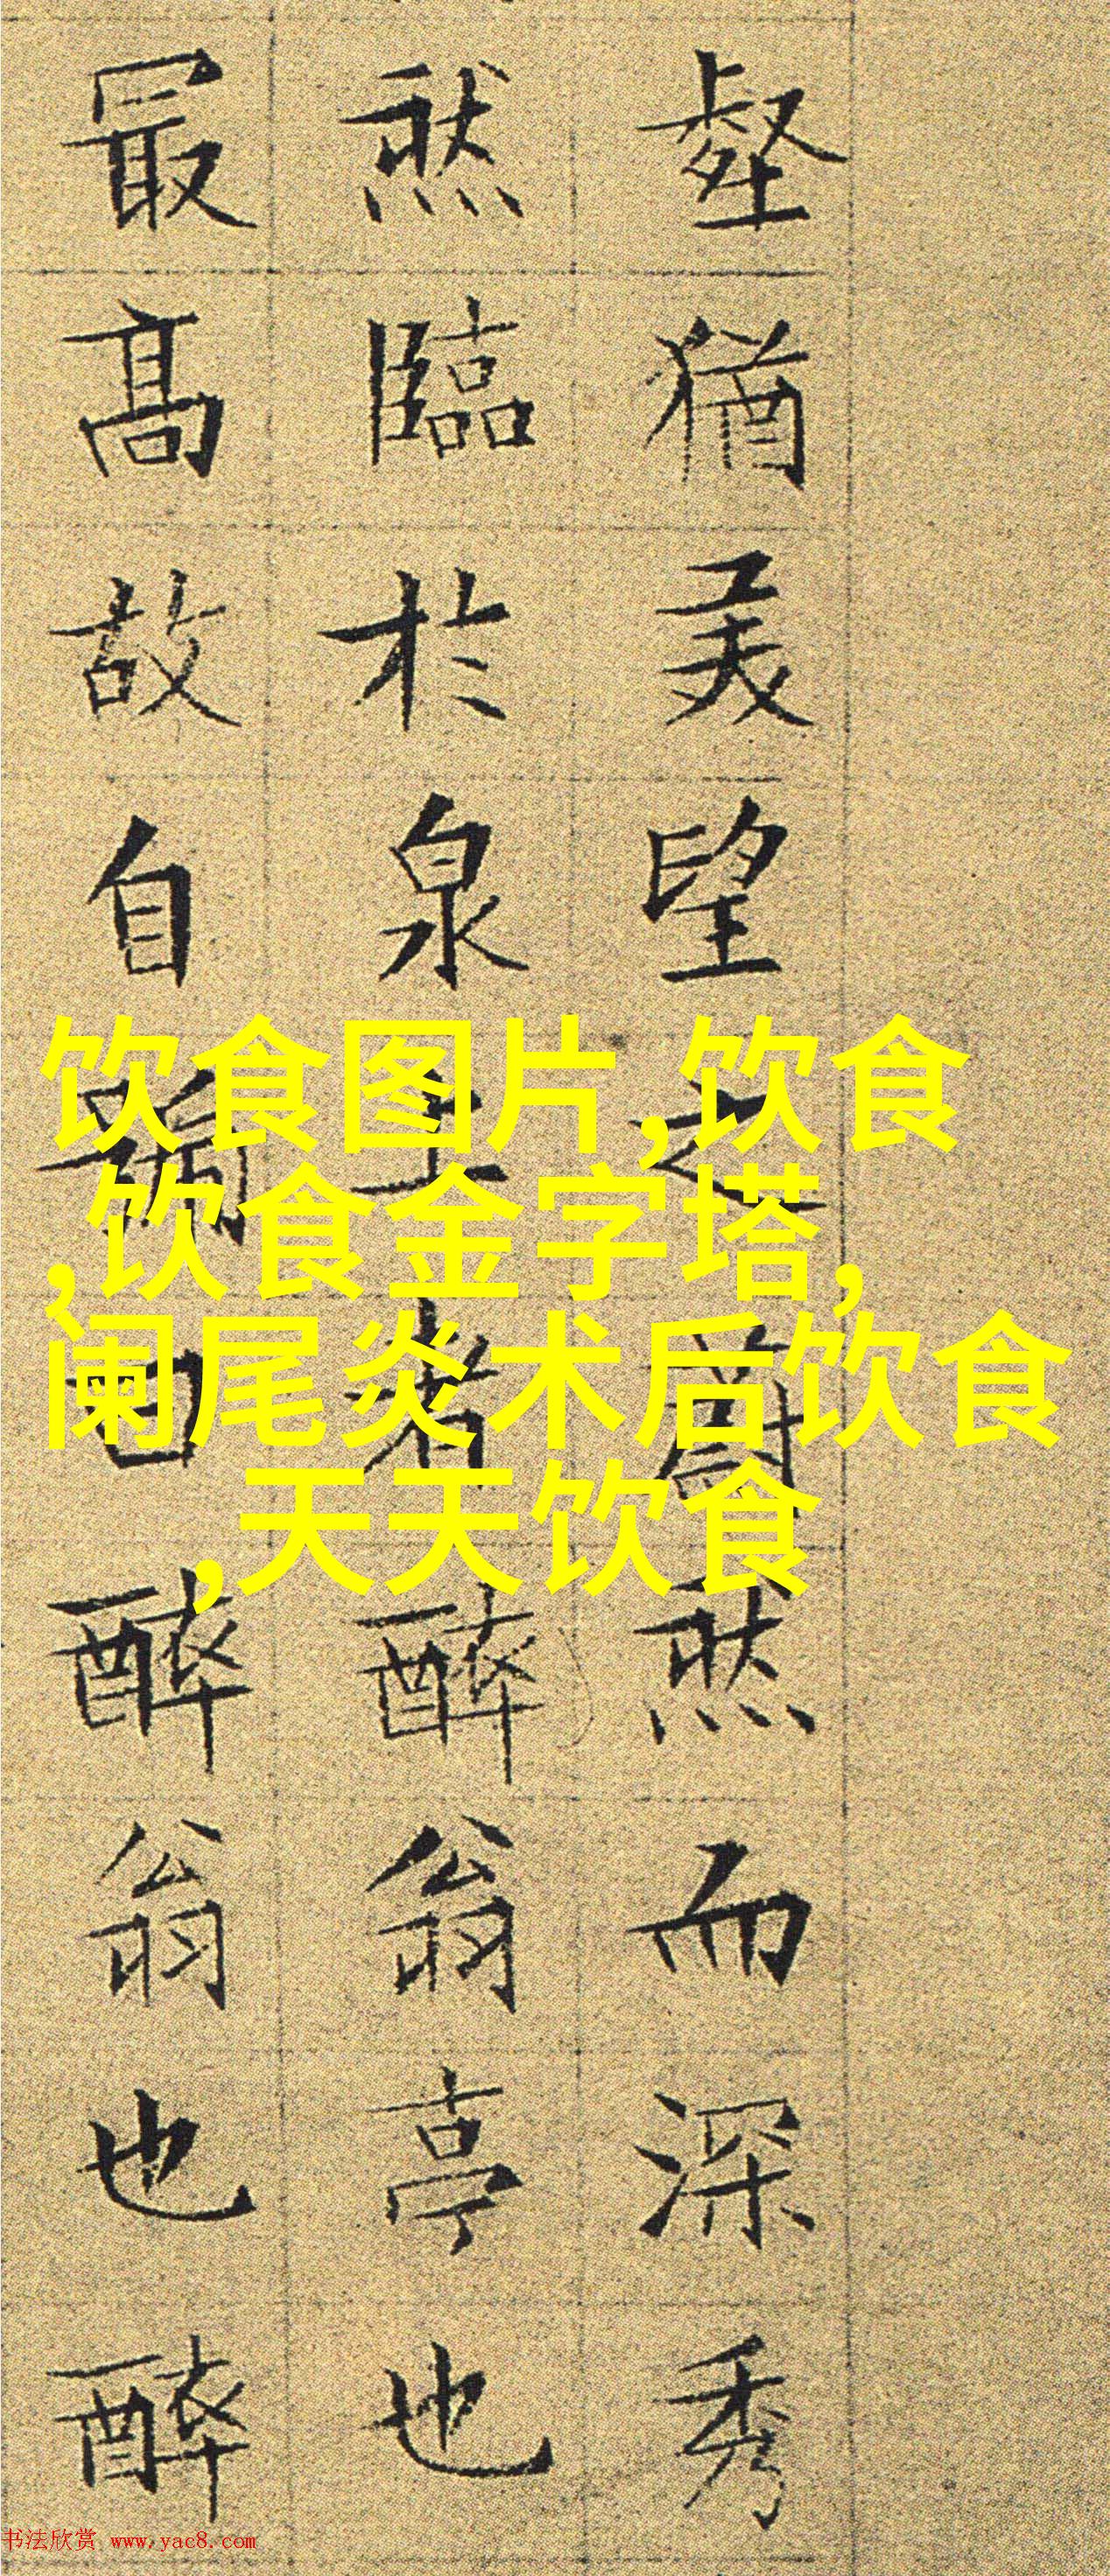 壑猶美望之蔚然而深秀
然臨於泉上者醉翁亭也
最髙故自號曰醉翁也醉
饮食图片,饮食
,饮食金字塔,
阑尾炎术后饮食
,天天饮食
书法欣赏 www.yac8.com